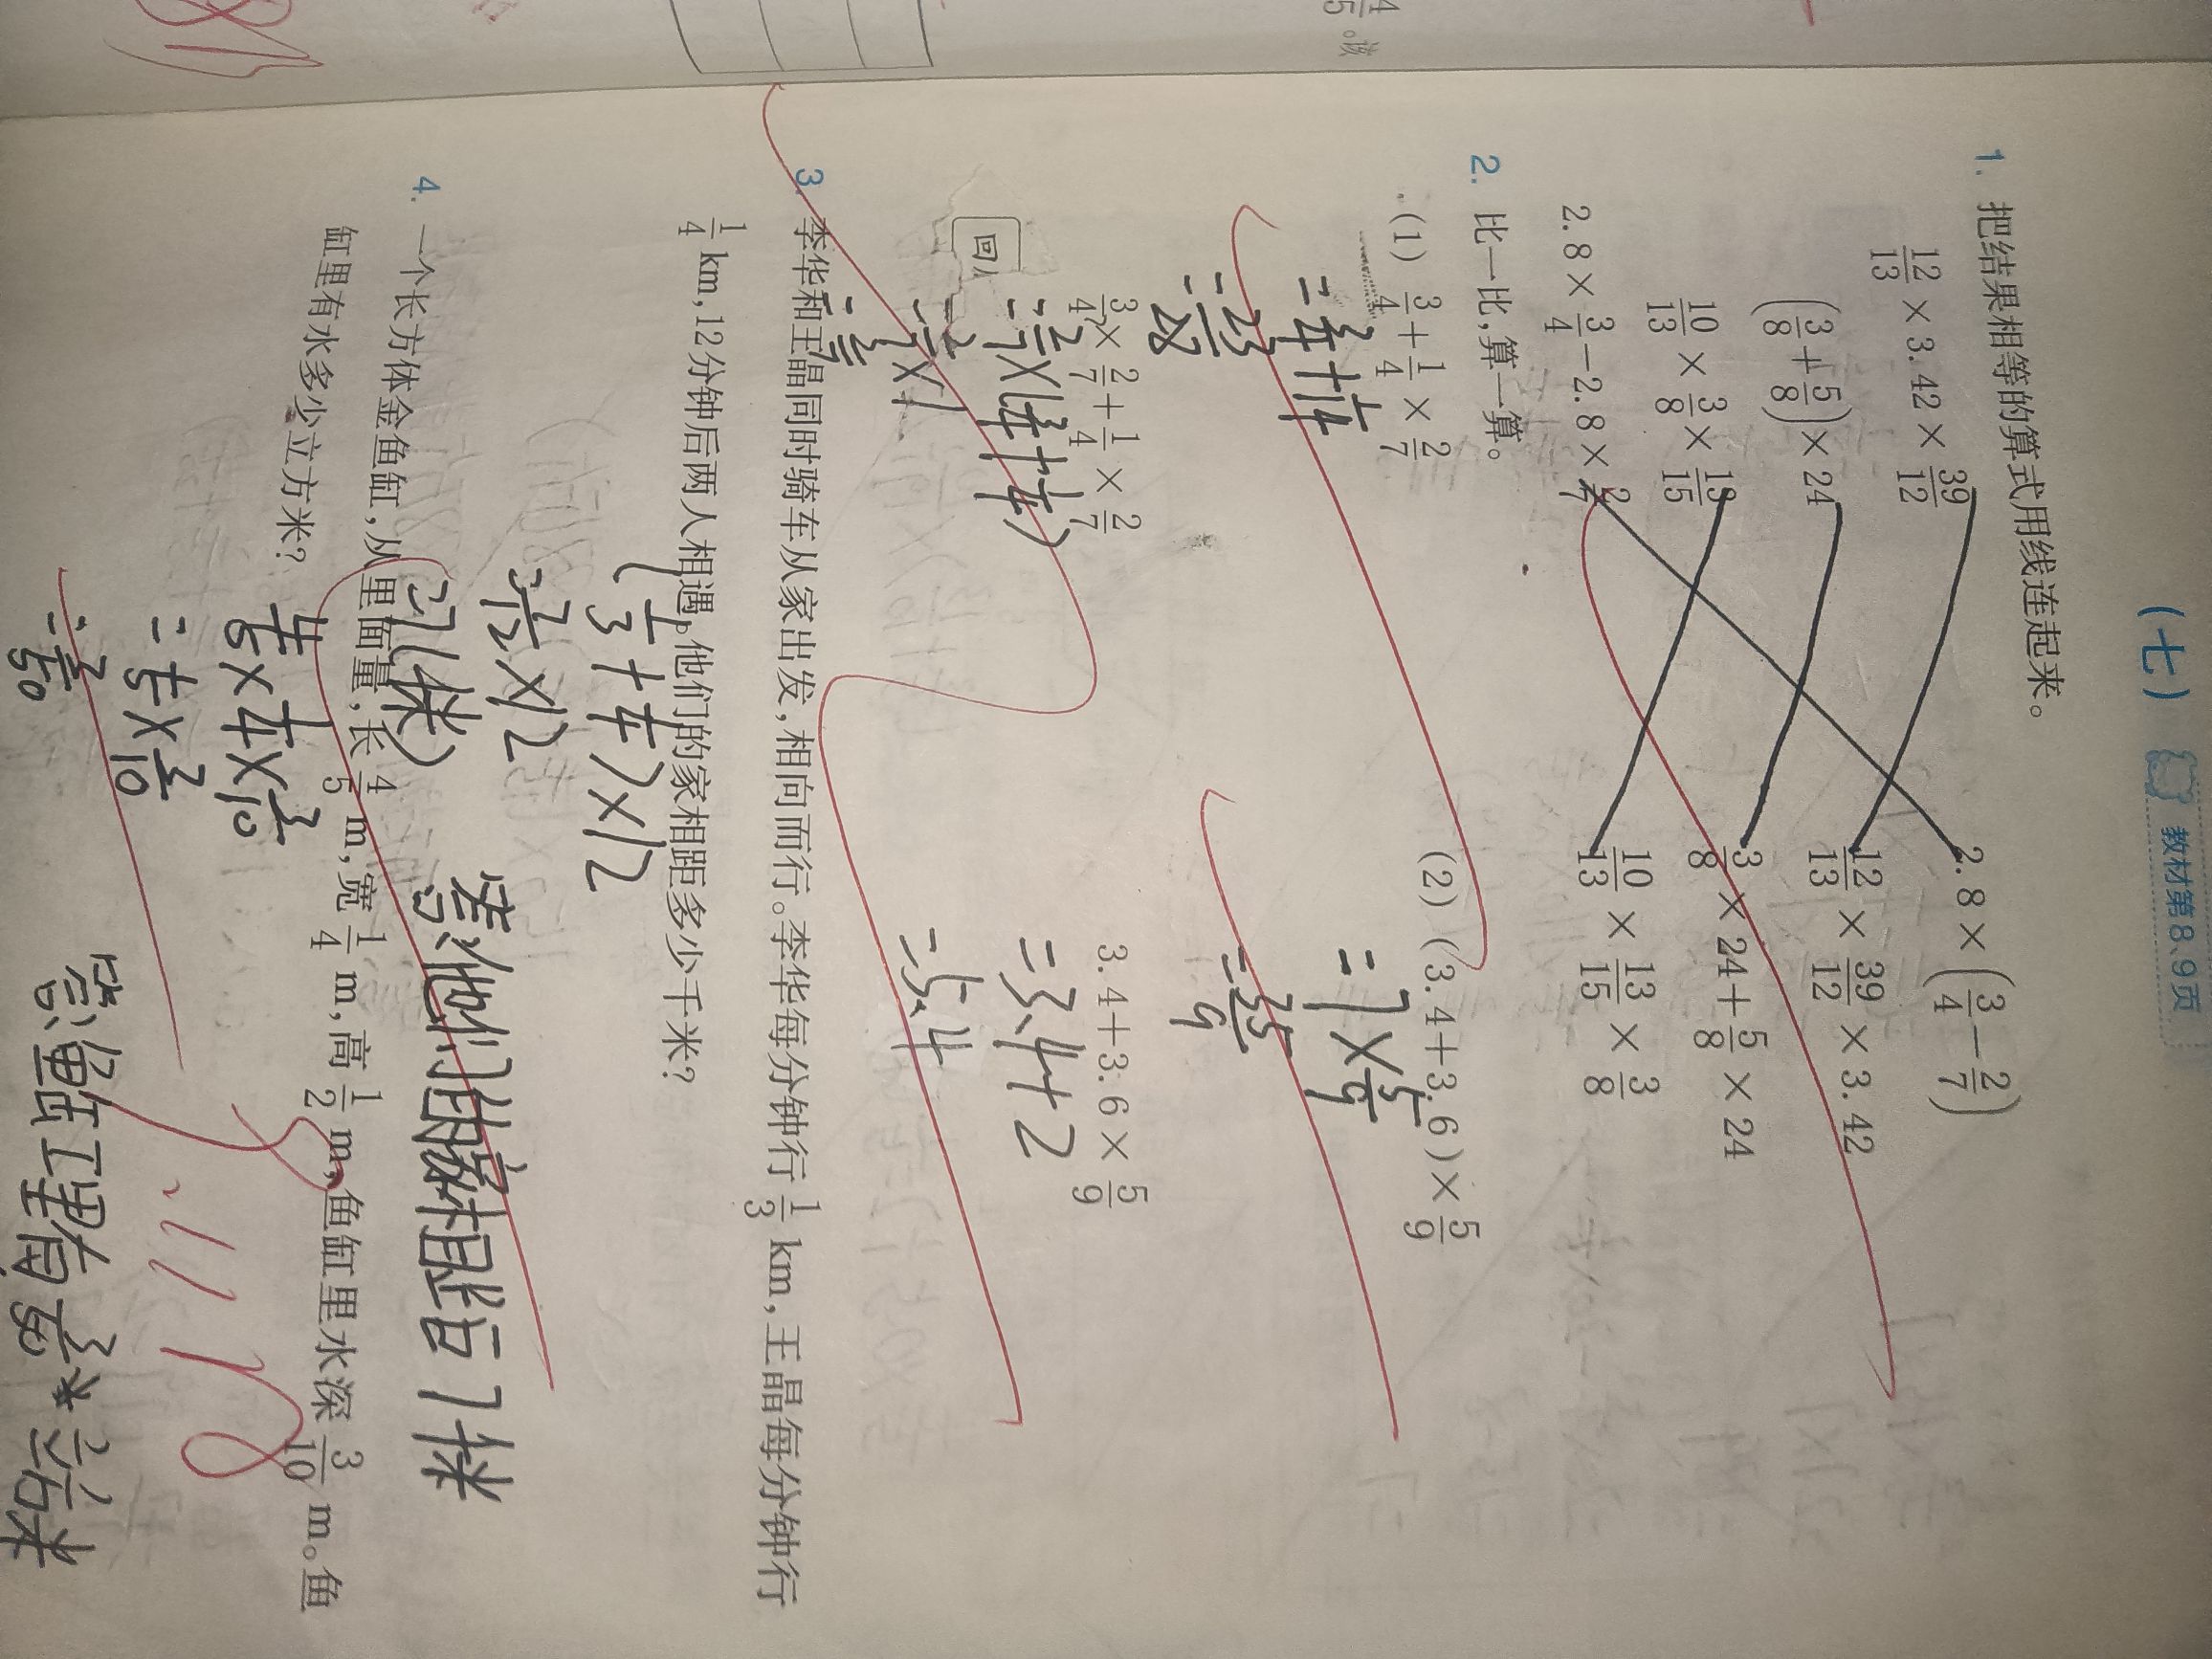 4/5。该
(七) 教材第8、9页
1. 把结果相等的算式用线连起来。
12/13×3.42×39/12 2.8×(3/4−2/7)
(3/8+5/8)×24 12/13×39/12×3.42
10/13×3/8×13/15 3/8×24+5/8×24
2.8×3/4−2.8×2/7 10/13×13/15×3/8
2. 比一比,算一算。
(1) 3/4+1/4×2/7 (2) (3.4+3.6)×5/9
=3/4+1/14 =7×5/9
=23/28 =35/9
3/4×2/7+1/4×2/7 3.4+3.6×5/9
=2/7×(3/4+1/4) =3.4+2
=2/7×1 =5.4
=2/7
3. 李华和王晶同时骑车从家出发,相向而行。李华每分钟行1/3 km,王晶每分钟行
1/4 km,12分钟后两人相遇。他们的家相距多少千米?
(1/3+1/4)×12
=7/12×12
=7(千米)
答:他们的家相距7千米
4. 一个长方体金鱼缸,从里面量,长4/5 m,宽1/4 m,高1/2 m,鱼缸里水深3/10 m。鱼
缸里有水多少立方米?
4/5×1/4×3/10
=1/5×3/10
=3/50
答:鱼缸里有水3/50立方米